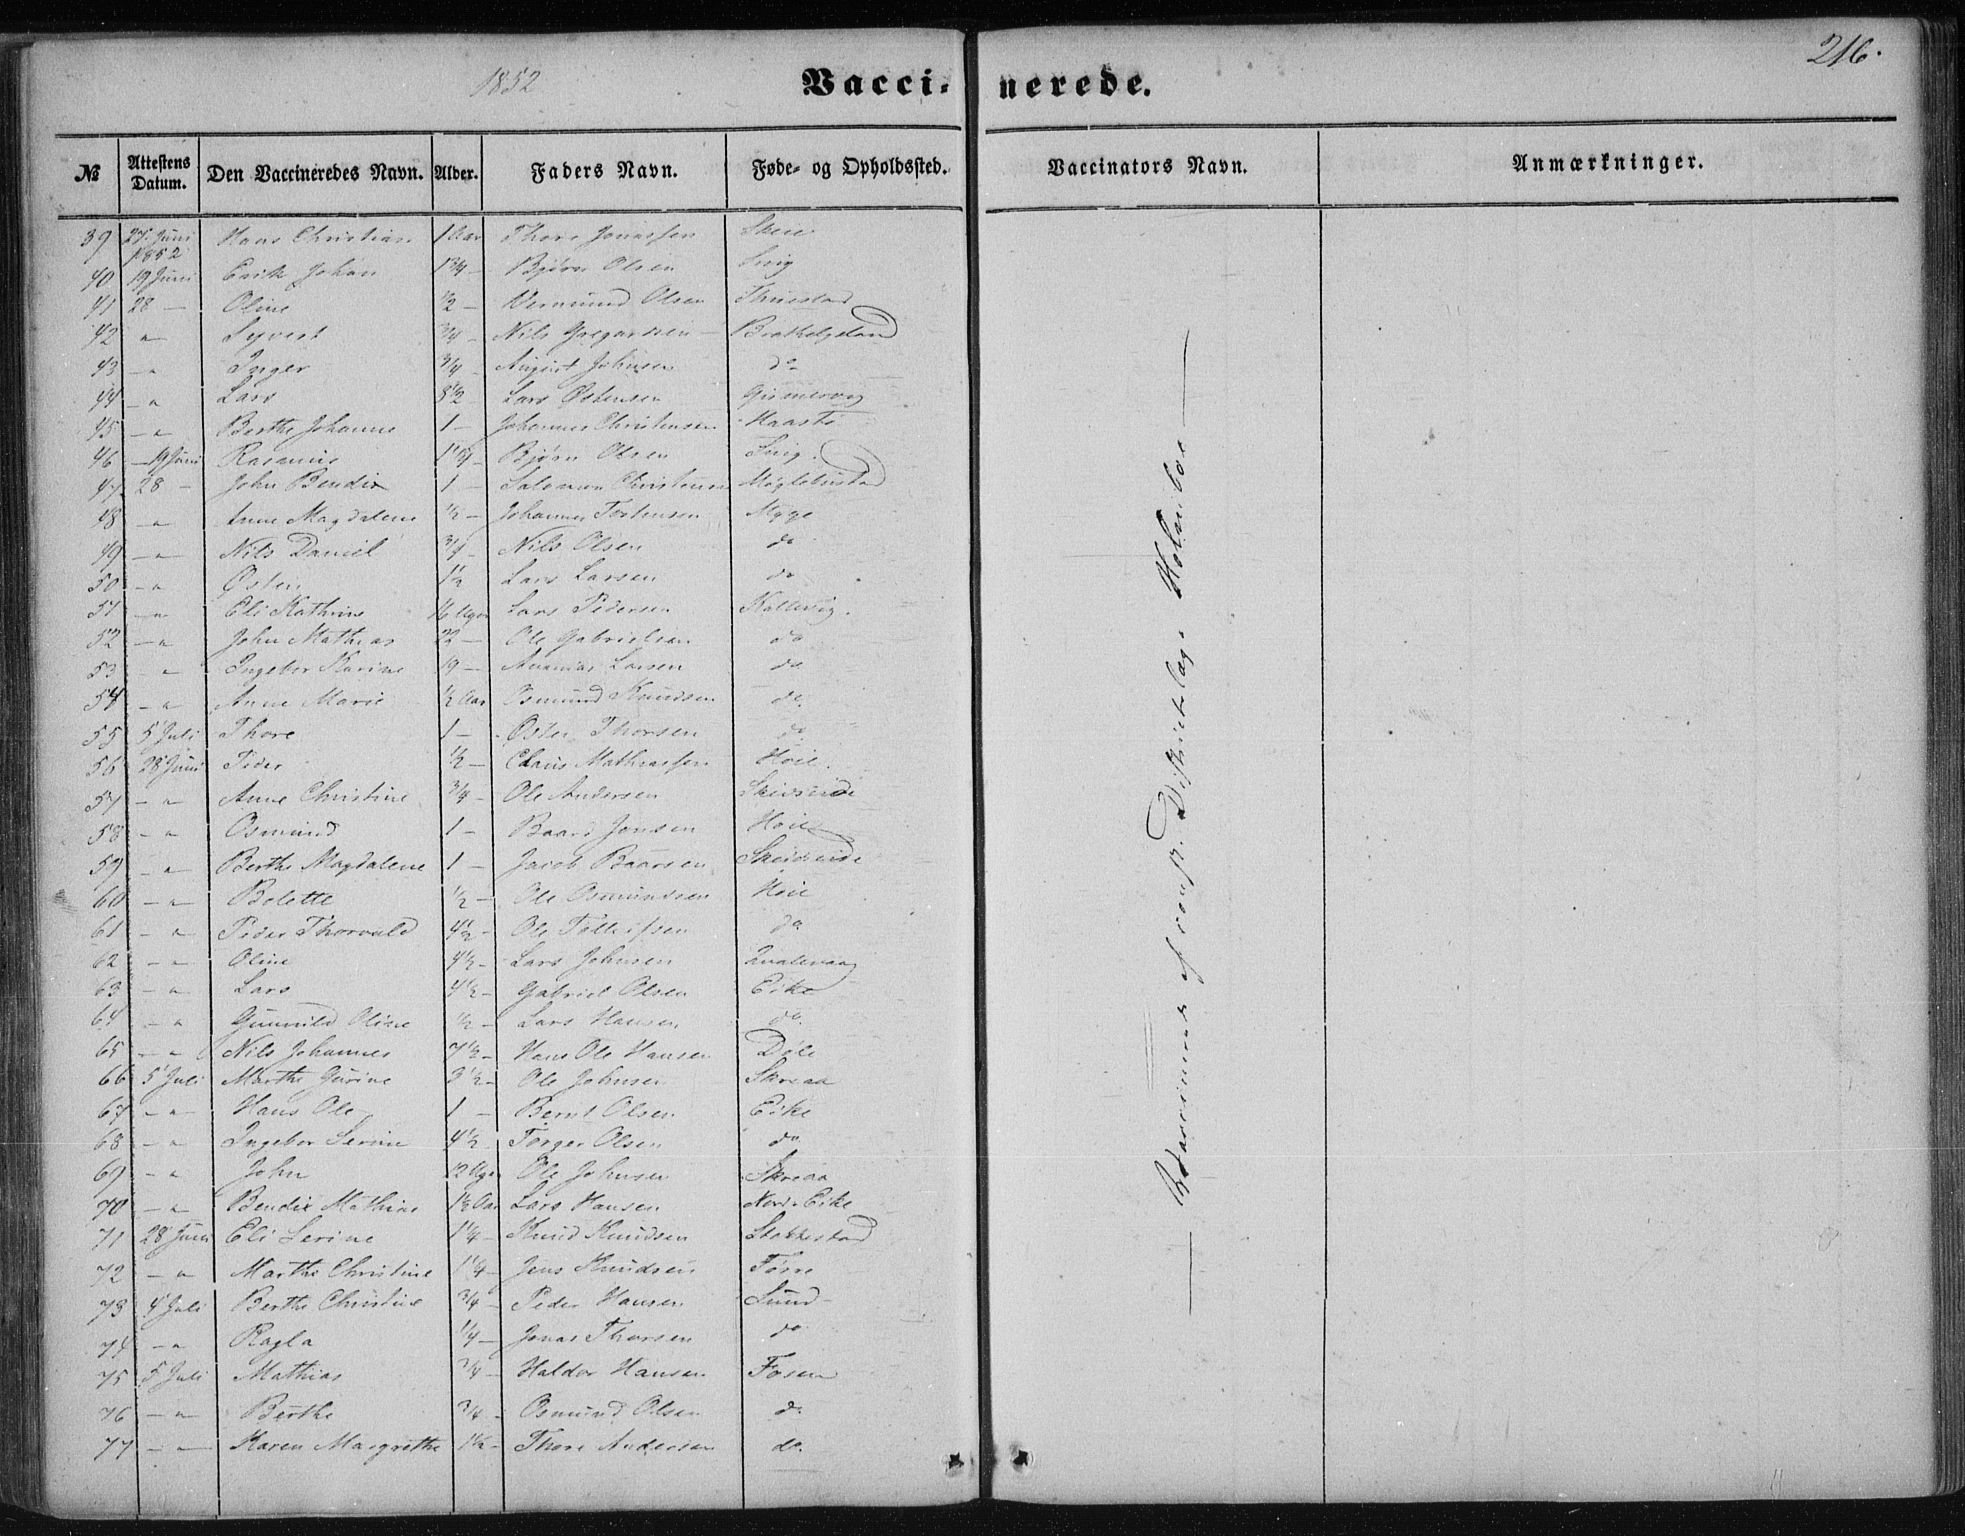 216.
1852
Vacci- nerede.
№ Attestens Datum. Den Vaccineredes Navn. Alder. Faders Navn. Føde- og Opholdssted. Vaccinators Navn. Anmærkninger.
39 27 Juni 1852 Hans Christian 1 Aar Thore Jonassen
40 19 Juni Erik Johan 1 3/4 - Bjørn Olsen
41 28 - Oline 1/2 - Vermund Olsen
42 - " Syvert 3/4 - Nils Gregorsen
43 - " Inger 3/4 August Johnsen do
44 - " Lars Lars Østensen
45 - " Berthe Johanne 1 - Johannes Christensen
46 - 19 Juni Rasmus Bjørn Olsen
47 28 - John Bendix 1 - Salomon Christensen
48 - " Anne Magdalene 1/2 - Johannes Torstensen Myge
49 - " Nils Daniel 3/4 - Nils Olsen do
50 - " Østen 1 1/2 Lars Larsen do
51 - " Eli Kathrine 16 Uger Lars Pedersen Kallevig.
52 - " John Mathias 22 - Ole Gabrielsen do
53 - " Ingebor Karine 19 - Ananias Larsen do
54 - " Anne Marie 1/2 Aar Osmund Knudsen do.
55 5 Juli Thore 1 - Østen Thorsen do
56 28 Juni Peder 1/2 - Claus Mathiassen Høie.
57 - " Anne Christine 3/4 - Ole Andersen
58 - " Osmund 1 - Baard Jonsen Høie
59 - " Berthe Magdalene 1 - Jacob Baarsen
60 - " Bolette 1/2 - Ole Osmundsen Høie
61 - " Peder Thorvald 4 1/2 - Ole Tollefsen do
62 - " Oline 4 1/2 - Lars Johnsen Qvalevaag
63 - " Lars 4 1/2 - Gabriel Olsen Eike
64 - " Gunnild Oline 1/2 - Lars Hansen do.
65 - " Nils Johannes 7 1/2 - Hans Ole Hansen Døle
66 5 Juli Marthe Gurine 3 1/2 - Ole Johnsen Skreaa
67 - " Hans Ole 1 - Bernt Olsen Eike
68 - " Ingebor Serine 4 1/2 - Torger Olsen do
69 - " John 12 Uger Ole Johnsen Skreaa
70 - " Bendix Mathias 1 1/2 Aar Lars Hansen Nord-Eike
71 28 Juni Eli Serine 1 1/4 - Knud Knudsen Stokkestad
72 - " Marthe Christine 1 1/4 - Jens Knudsen Førre
73 4 Juli Berthe Christine 3/4 - Peder Hansen Sund
74 - " Ragla 1/4 - Jonas Thorsen do
75 5 Juli Mathias 3/4 - Haldor Hansen Fosen
76 - " Berthe 3/4 - Osmund Olsen do
77 - " Karen Margrethe 1 1/2 - Thore Andersen do.